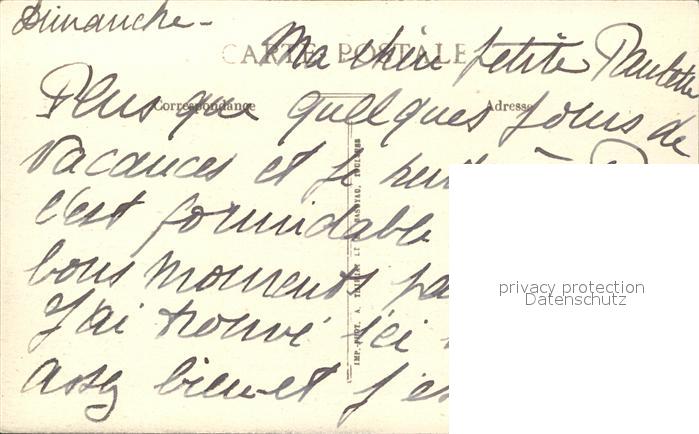 Dimanche -
CARTE POSTALE
Ma chère petite Paulette
Correspondance
Adresse
Plus que quelques jours de
vacances et je
c'est formidable
bons moments
J'ai trouvé ici
assez bien et j'es
IMP.-PHOT. A.
TOULOUSE
privacy protection
Datenschutz